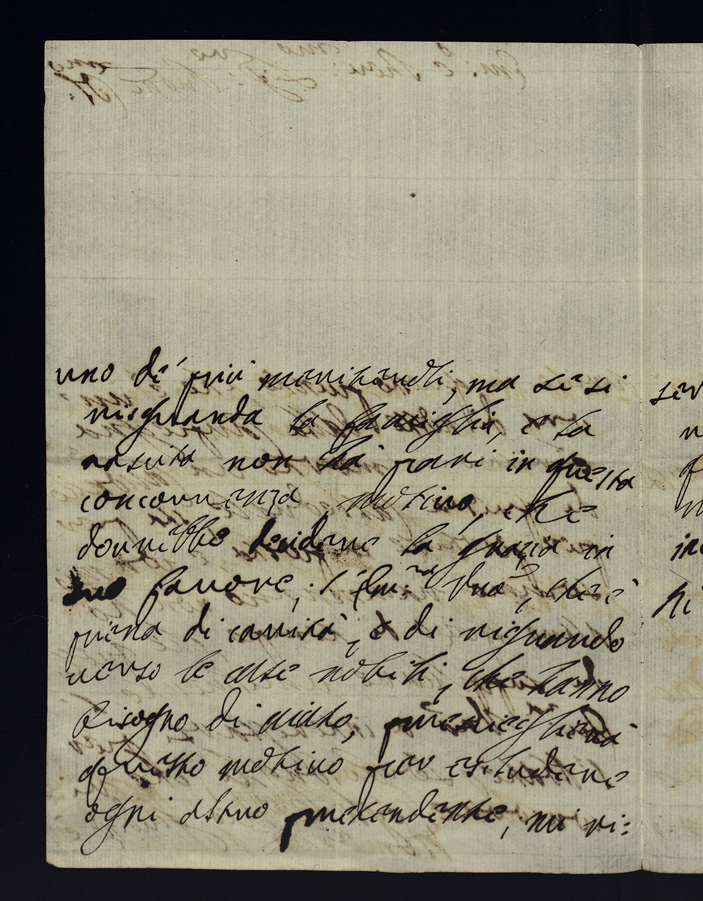 uno de' più meritevoli, ma se si
risguarda la famiglia, e la
nascita non ha pari in questa
concorrenza, motivo, che
dovrebbe decidere la grazia in
suo favore; l'Em.za Vra, che è
piena di carità, e di riguardo
verso le case nobili, che hanno
bisogno di aiuto,
questo motivo per escludere
ogni altro pretendente, mi ri: